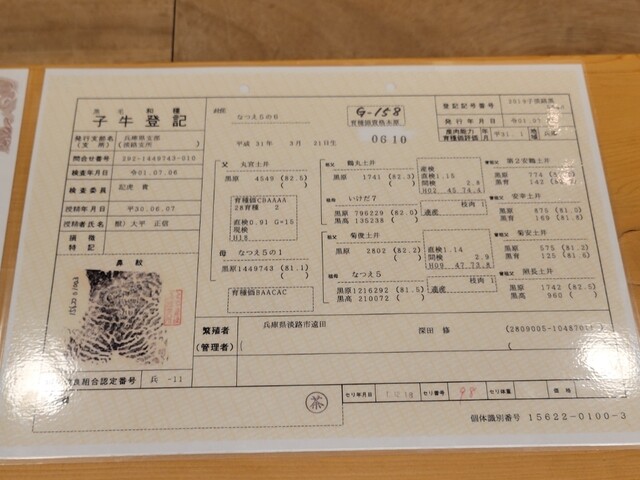 黒毛和種
子牛登記
発行支部名 兵庫県支部
(支所) (淡路支所)
問合せ番号 292-1449743-010
検査年月日 令01.07.06
検査委員 記虎 貴
授精年月日 平30.06.07
授精者氏名 大平 正信
損徴
特記
鼻紋
良組合認定番号 兵 -11
なつえ5の6
G-158
育種価資格本部
平成 31年 3月 21日生
0610
登記記号番号
発行年月日
産肉能力
育種価評価
年月
地域
父 丸宮土井
黒原 4549 (82.5)
育種価CBAAAA
28育種 2
直検0.91 G=15
現検
H18
母 なつえ5の1
黒原1449743 (81.1)
育種価BAACAC
祖父 鶴丸土井
黒原 1741 (82.3)
祖母 いけだ7
黒原 796229 (82.0)
黒高 135238
祖父 菊俊土井
黒原 2802 (82.2)
祖母 なつえ5
黒原1216292 (81.5)
黒高 210072
産検
直検1.15
間検 2.8
H02 45 74.4
枝肉 1
遺産
直検1.14
間検 2.9
H09 47 73.8
枝肉 1
遺産
曾祖父 第2安鶴土井
黒原 774
黒育 142
曾祖父 安幸土井
黒原 875 (81.5)
黒育 169 (81.8)
曾祖父 菊安土井
黒原 575 (81.2)
黒育 125 (81.6)
曾祖父 照長土井
黒原 1742 (82.5)
黒高 960
繁殖者
(管理者)
兵庫県淡路市遠田
深田 修
セリ年月日
セリ番号 98
セリ体重
価格
個体識別番号 15622-0100-3